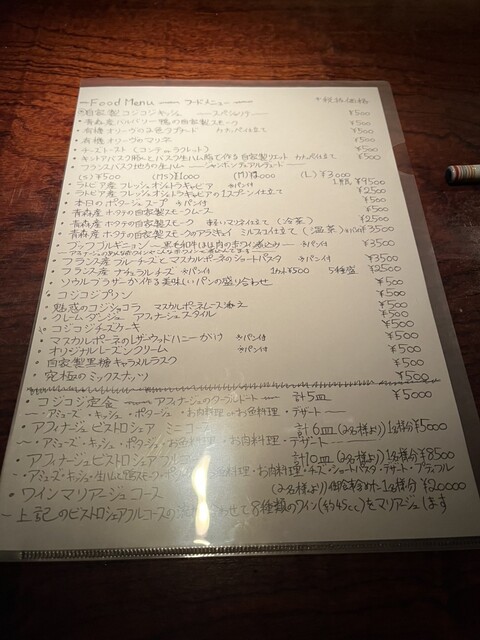 ーFood Menu ー フードメニューー ＊税抜価格
・自家製コジコジキッシュ ースペシャリテー ¥500
・青森産バルバリー鴨の自家製スモーク ¥500
・有機オリーヴの タプナード カナッペ仕立て ¥500
・有機オリーヴのマリネ ¥500
・チーズトースト (コンテ or ラクレット) ¥500
・キントアバスク豚とバスク生ハム脂で作る自家製リエット カナッペ仕立て ¥500
・フランスバスク地方の生ハム
(S) ¥500 (MS) ¥1000 (M) ¥2000 (L) ¥3000
・ラトビア産 フレッシュオシェトラキャビア ＊パン付 ¥9500
・ラトビア産 フレッシュオシェトラキャビアの1スプーン仕立て ¥2500
・本日のポタージュスープ ＊パン付 ¥500
・青森産 ホタテの自家製スモークムース ¥500
・青森産 ホタテの自家製スモーク 軽いマリネ仕立て (冷菜) ¥2500
・青森産 ホタテの自家製スモークのアラミキュイ ミルフイユ仕立て (温菜) ＊パン付 ¥3500
・ブッフブルギニョン ー黒毛和牛ほほ肉の赤ワイン煮込みー ＊パン付 ¥3500
・フランス産 ブルーチーズとマスカルポーネのショートパスタ ＊パン付 ¥3500
・フランス産 ナチュラルチーズ ＊パン付 1カット ¥500 5種盛 ¥2500
・ソウルブラザーが作る美味しいパンの盛り合わせ ¥500
・コジコジプリン ¥500
・魅惑のコジショコラ マスカルポーネムース添え ¥500
・クレームダンジュ アフィナージュスタイル ¥500
・コジコジチーズケーキ ¥500
・マスカルポーネのレザーウッドハニーがけ ＊パン付 ¥500
・オリジナルレーズンクリーム ＊パン付 ¥500
・自家製黒糖キャラメルラスク ¥500
・究極のミックスナッツ ¥500
・コジコジ定食 ーアフィナージュのターブルドートー 計5皿 ¥5000
ー・アミューズ・キッシュ・ポタージュ・お肉料理 or お魚料理・デザートー
・アフィナージュビストロシェア ミニコース 計6皿(2名様より)1名様分 ¥5000
ー・アミューズ・キッシュ・ポタージュ・お魚料理・お肉料理・デザートー
・アフィナージュビストロシェアフルコース 計10皿(2名様より)1名様分 ¥8500
・お肉料理・チーズ・ショートパスタ・デザート・プティフル
・ワインマリアージュコース (2名様より)1名様分 ¥20000
ー上記のビストロシェアフルコースの 合わせて8種類のワイン(約45cc)をマリアージュします